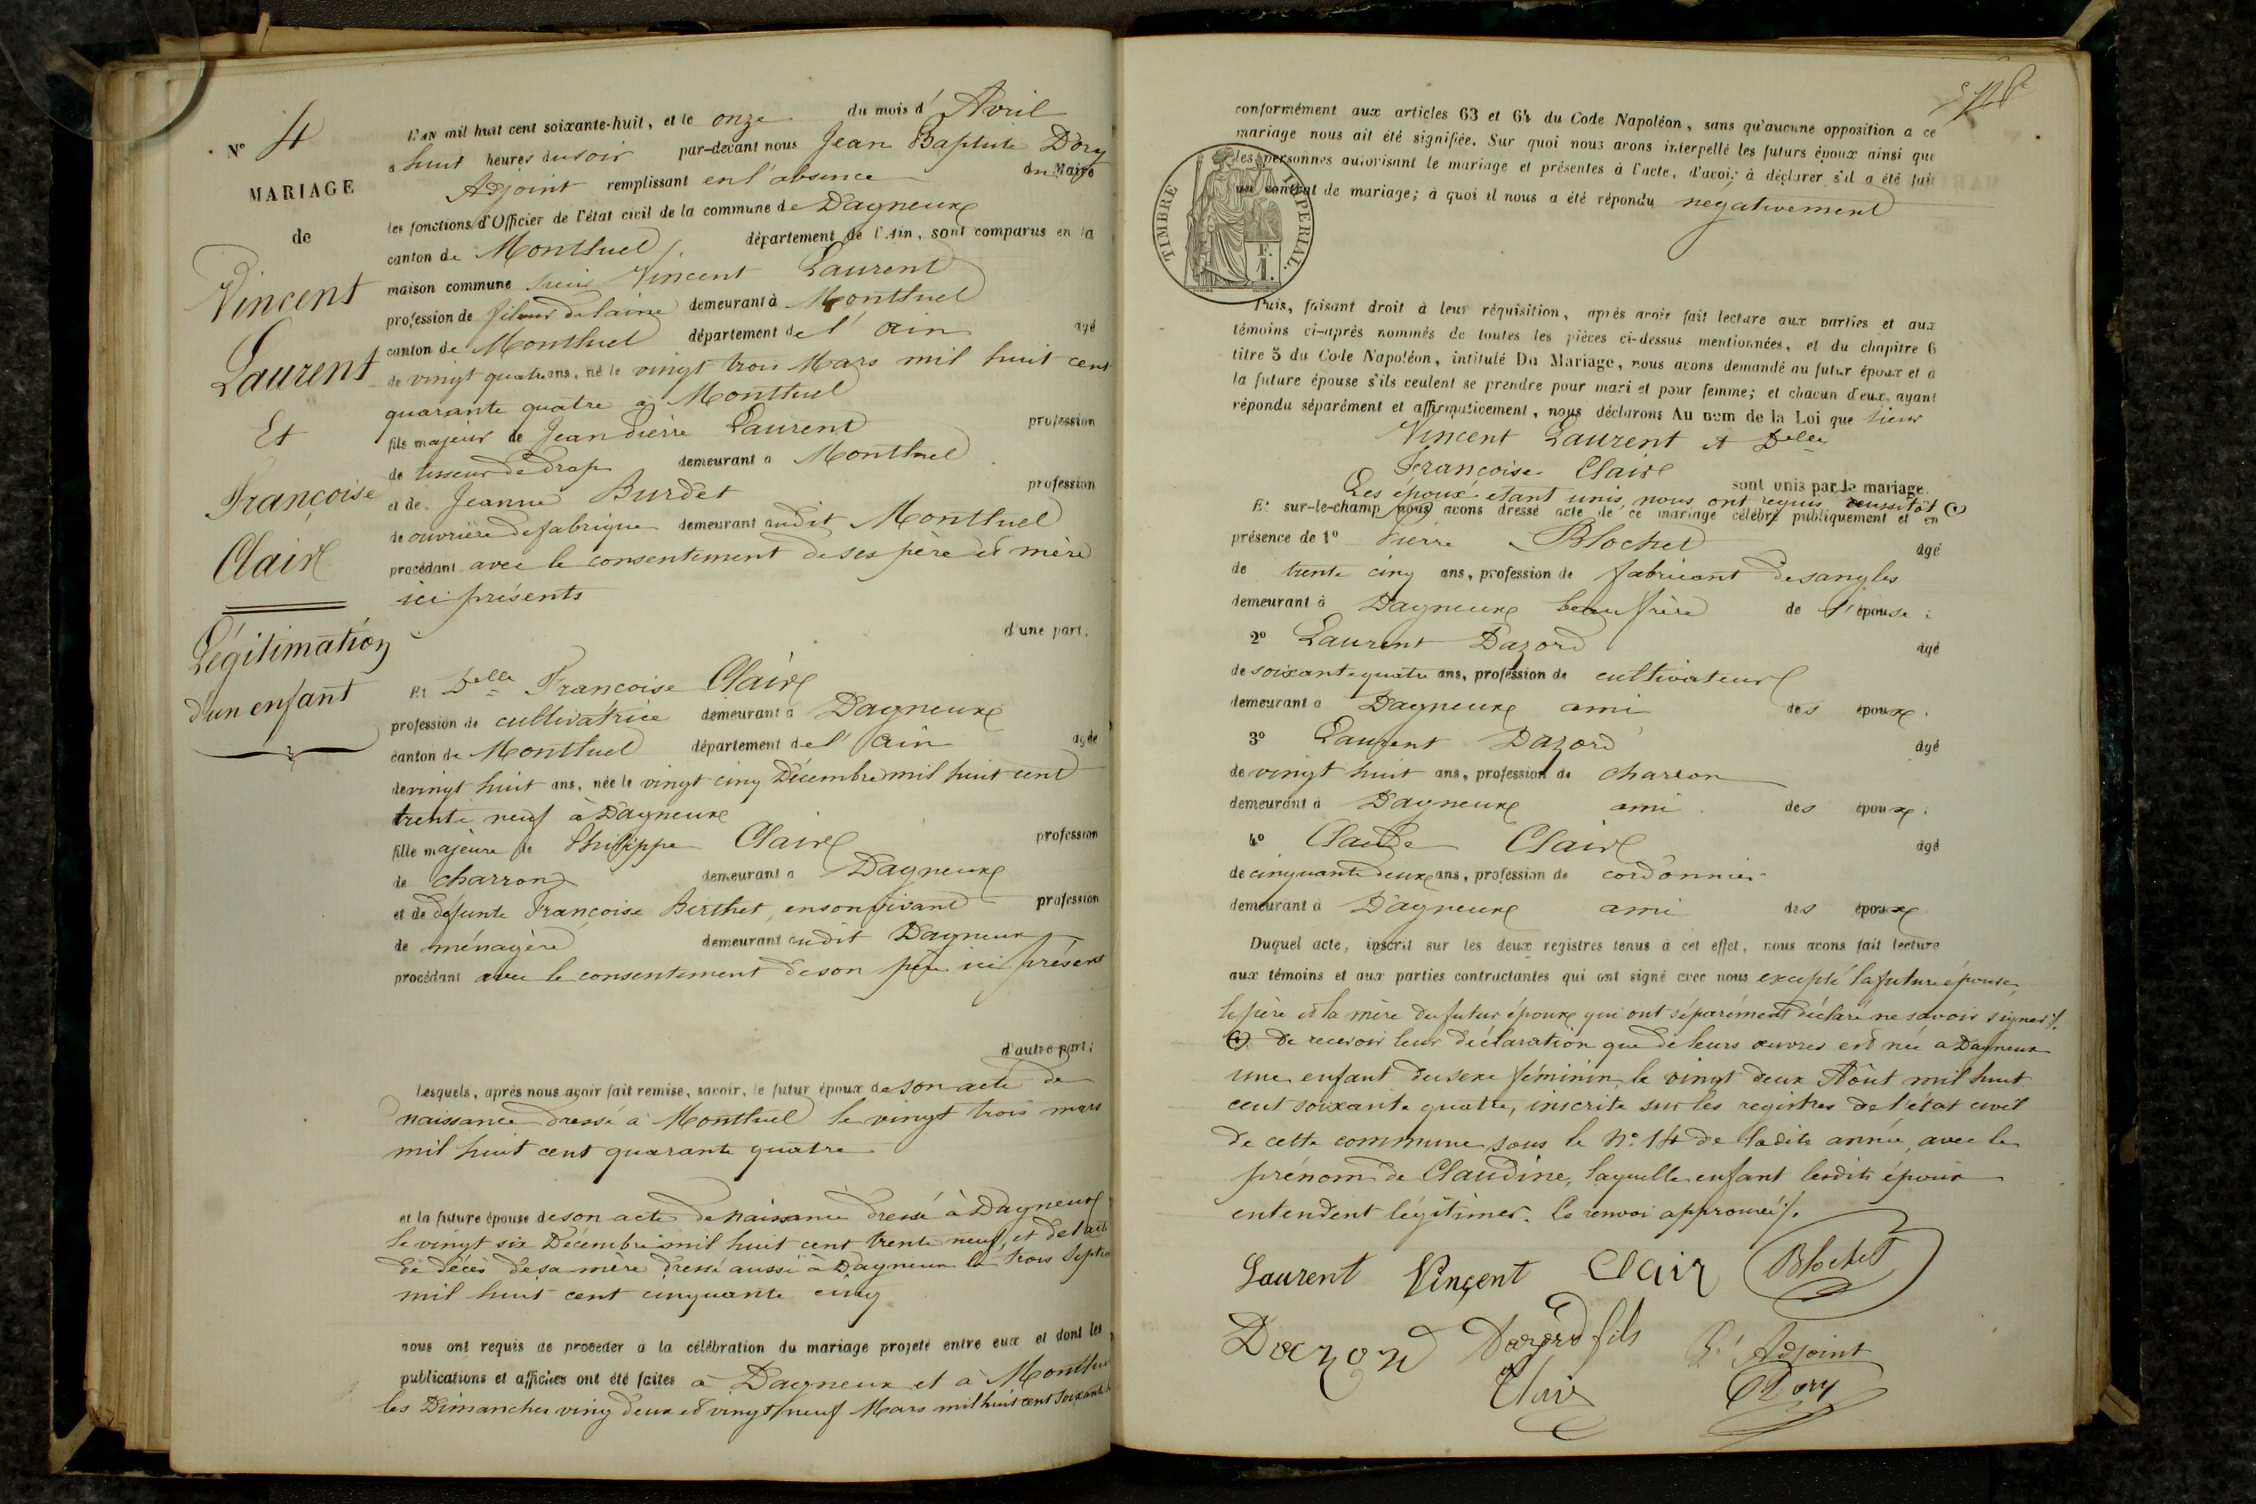 N° 4
MARIAGE
de
Vincent
Laurent
Et
Françoise
Clair
Légitimation
d'un enfant
L'AN mil huit cent soixante-huit, et le onze du mois d'Avril
a huit heures du soir par-devant nous Jean Baptiste Dory
Adjoint remplissant en l'absence du Maire
les fonctions d'Officier de l'état civil de la commune de Dagneux
canton de Montluel département de l'Ain, sont comparus en la
maison commune sieur Vincent Laurent
profession de fileur de laine demeurant à Montluel
canton de Montluel département de l'ain agé
de vingt quatre ans, né le vingt trois Mars mil huit cent
quarante quatre à Montluel
fils majeur de Jean Pierre Laurent profession
de tisseur de drap demeurant a Montluel
et de Jeanne Burdet profession
de ouvrière de fabrique demeurant audit Montluel
procédant avec le consentement de ses père et mère
ici présents
d'une part,
Et Delle Françoise Clair
profession de cultivatrice demeurant à Dagneux
canton de Montluel département de l'ain agée
de vingt huit ans, née le vingt cinq Décembre mil huit cent
trente neuf à Dagneux
fille majeure de Philippe Clair profession
de charron demeurant a Dagneux
et de défunte Françoise Berthet, en son vivant profession
de ménagère demeurant audit Dagneux
procédant avec le consentement de son père ici présent
d'autre part;
Lesquels, après nous avoir fait remise, savoir, le futur époux de son acte de
naissance dressé à Montluel le vingt trois mars
mil huit cent quarante quatre
et la future épouse de son acte de naissance dressé à Dagneux
le vingt six Décembre mil huit cent trente neuf, et de l'acte
de décès de sa mère dressé aussi à Dagneux le trois Septre
mil huit cent cinquante cinq
nous ont requis de proceder a la célébration du mariage projeté entre eux et dont les
publications et affiches ont été faites à Dagneux et à Montluel
les Dimanches vingt deux et vingt neuf Mars mil huit cent soixante
conformément aux articles 63 et 64 du Code Napoléon, sans qu'aucune opposition a ce
mariage nous ait été signifiée. Sur quoi nous avons interpellé les futurs époux ainsi que
les personnes autorisant le mariage et présentes à l'acte, d'avoir à déclarer s'il a été fait
un contrat de mariage; à quoi il nous a été répondu négativement
TIMBRE IMPERIAL.
F.
1.
Puis, faisant droit à leur réquisition, après avoir fait lecture aux parties et aux
témoins ci-après nommés de toutes les pièces ci-dessus mentionnées, et du chapitre 6
titre 5 du Code Napoléon, intitulé Du Mariage, nous avons demandé au futur époux et a
la future épouse s'ils veulent se prendre pour mari et pour femme; et chacun d'eux, ayant
répondu séparément et affirmativement, nous déclarons Au nom de la Loi que sieur
Vincent Laurent et Delle
Françoise Clair sont unis par le mariage.
Les époux étant unis, nous ont requis aussitôt (1)
Et sur-le-champ nous avons dressé acte de ce mariage célébré publiquement et en
présence de 1° Pierre Blochet agé
de trente cinq ans, profession de fabricant de sangles
demeurant à Dagneux beau frère de l'épouse;
2° Laurent Dazord agé
de soixante quatre ans, profession de cultivateur
demeurant a Dagneux ami des époux.
3° Laurent Dazord agé
de vingt huit ans, profession de charron
demeurant à Dagneux ami des époux;
4° Claude Clair agé
de cinquante deux ans, profession de cordonnier
demeurant à Dagneux ami des époux
Duquel acte, inscrit sur les deux registres tenus à cet effet, nous avons fait lecture
aux témoins et aux parties contractantes qui ont signé avec nous excepté la future épouse,
le père et la mère du futur époux qui ont séparément déclaré ne savoir signer /.
(1) de recevoir leur déclaration que de leurs œuvres est née a Dagneux
une enfant du sexe féminin le vingt deux Août mil huit
cent soixante quatre, inscrite sur les registres de l'état civil
de cette commune sous le N° 14 de ladite année, avec le
prénom de Claudine, laquelle enfant lesdits époux
entendent légitimer. Ce renvoi approuvé /.
Laurent Vincent Clair Blochet
Dazord Dazord fils
L'Adjoint
Clair Dory